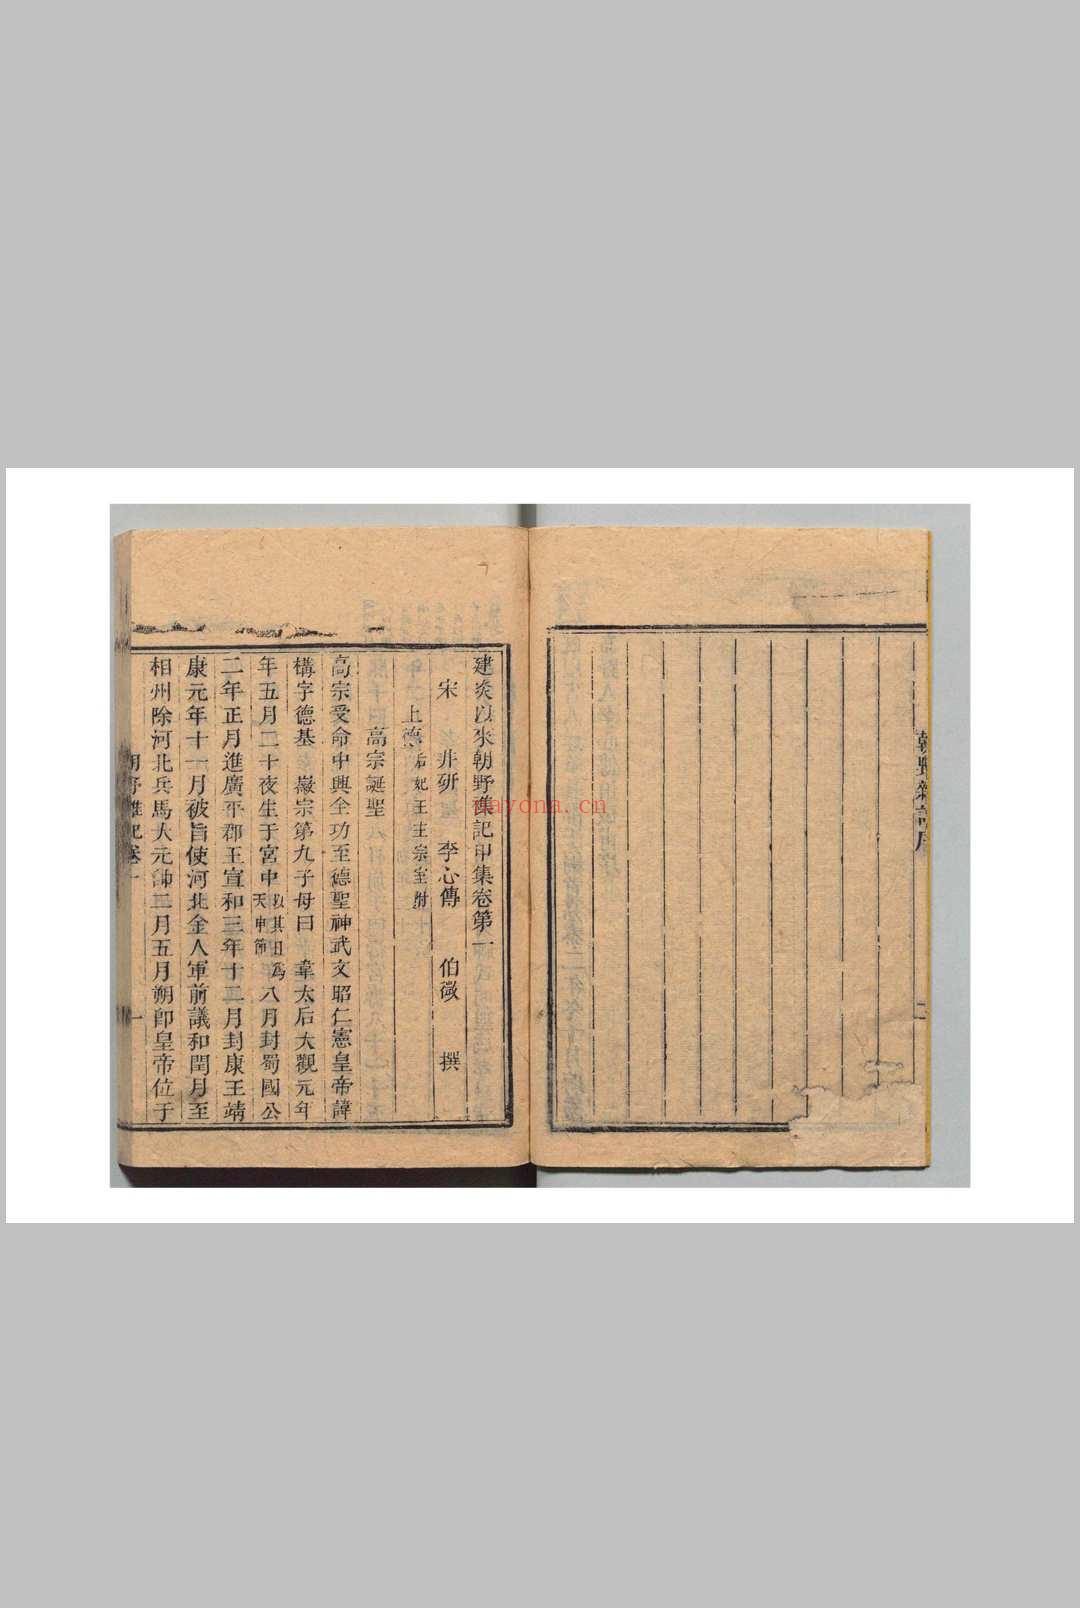 朝野雜記序
二
建炎以來朝野雜記甲集卷第一
宋 井研 李心傳 伯微 撰
上德 后妃王主宗室附
高宗誕聖
高宗受命中興全功至德聖神武文昭仁憲皇帝諱
構字德基 徽宗第九子母曰 韋太后大觀元年
年五月二十夜生于宮中以其日為天申節八月封蜀國公
二年正月進廣平郡王宣和三年十二月封康王靖
康元年十一月被旨使河北金人軍前議和閏月至
相州除河北兵馬大元帥二月五月朔卽皇帝位于
朝野雜記卷一
一
nayona.cn